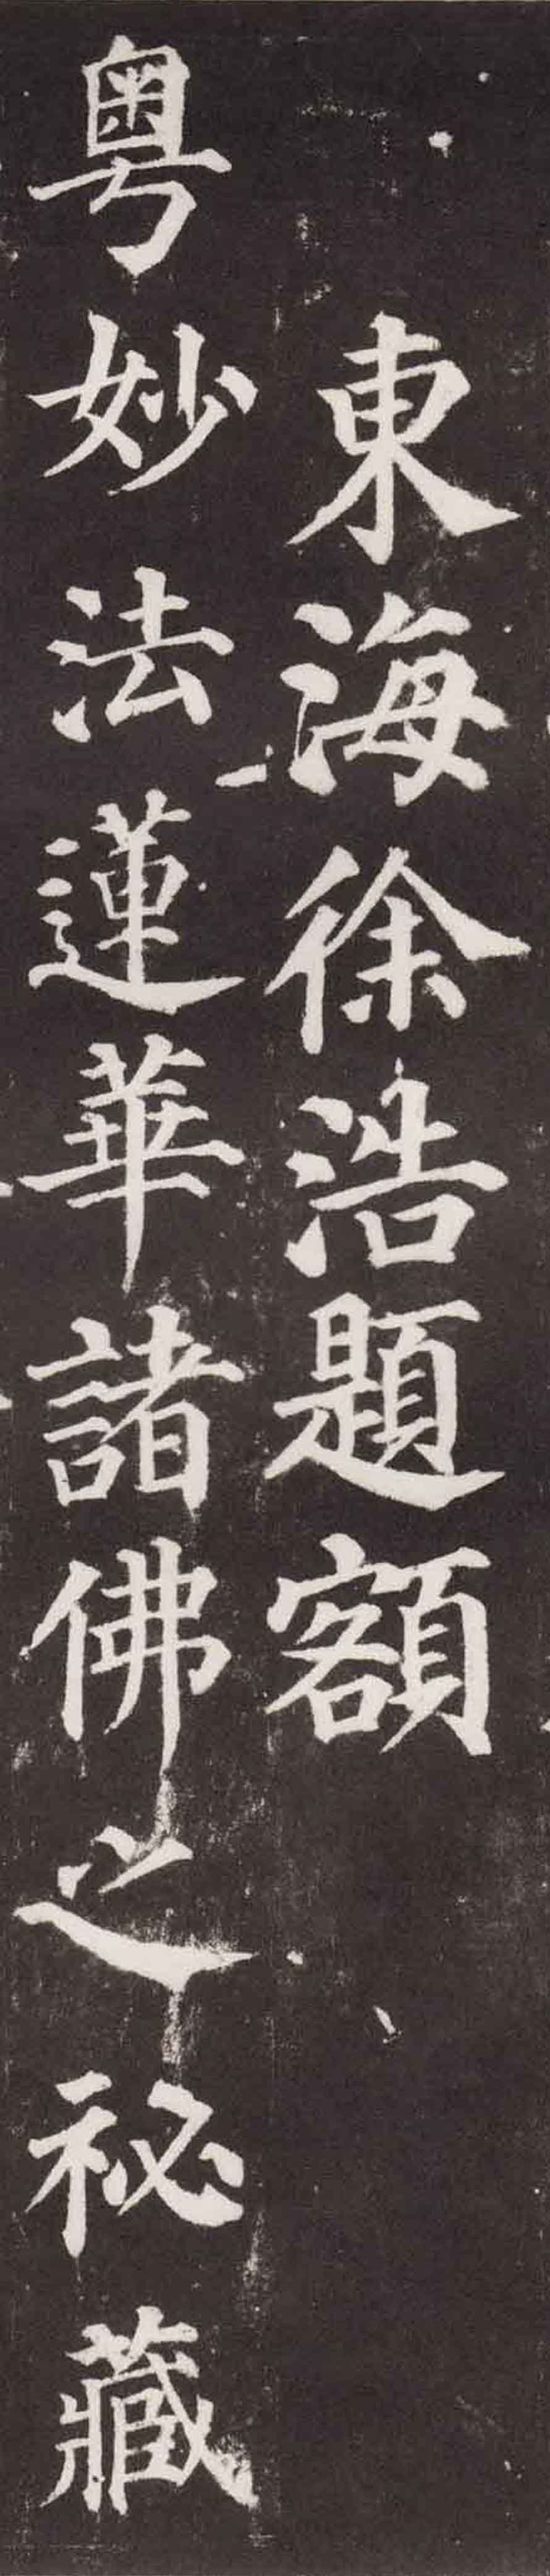 東海徐浩題額
粵妙法蓮華諸佛之祕藏